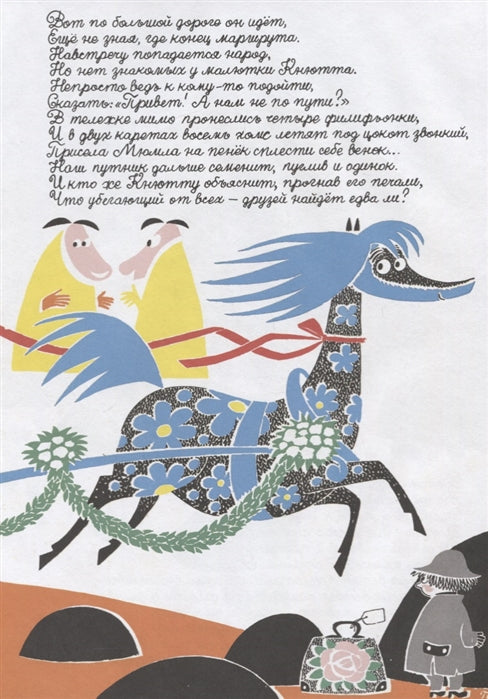 Вот по большой дороге он идёт,
Ещё не зная, где конец маршрута.
Навстречу попадается народ,
Но нет знакомых у малютки Кнютта.
Непросто ведь к кому-то подойти,
Сказать: «Привет! А нам не по пути?»
В тележке мимо пронеслись четыре филифьонки,
И в двух каретах восемь хомс летят под цокот звонкий,
Присела Мюмла на пенёк сплести себе венок...
Наш путник дальше семенит, пуглив и одинок.
И кто же Кнютту объяснит, прогнав его печали,
Что убегающий от всех — друзей найдёт едва ли?